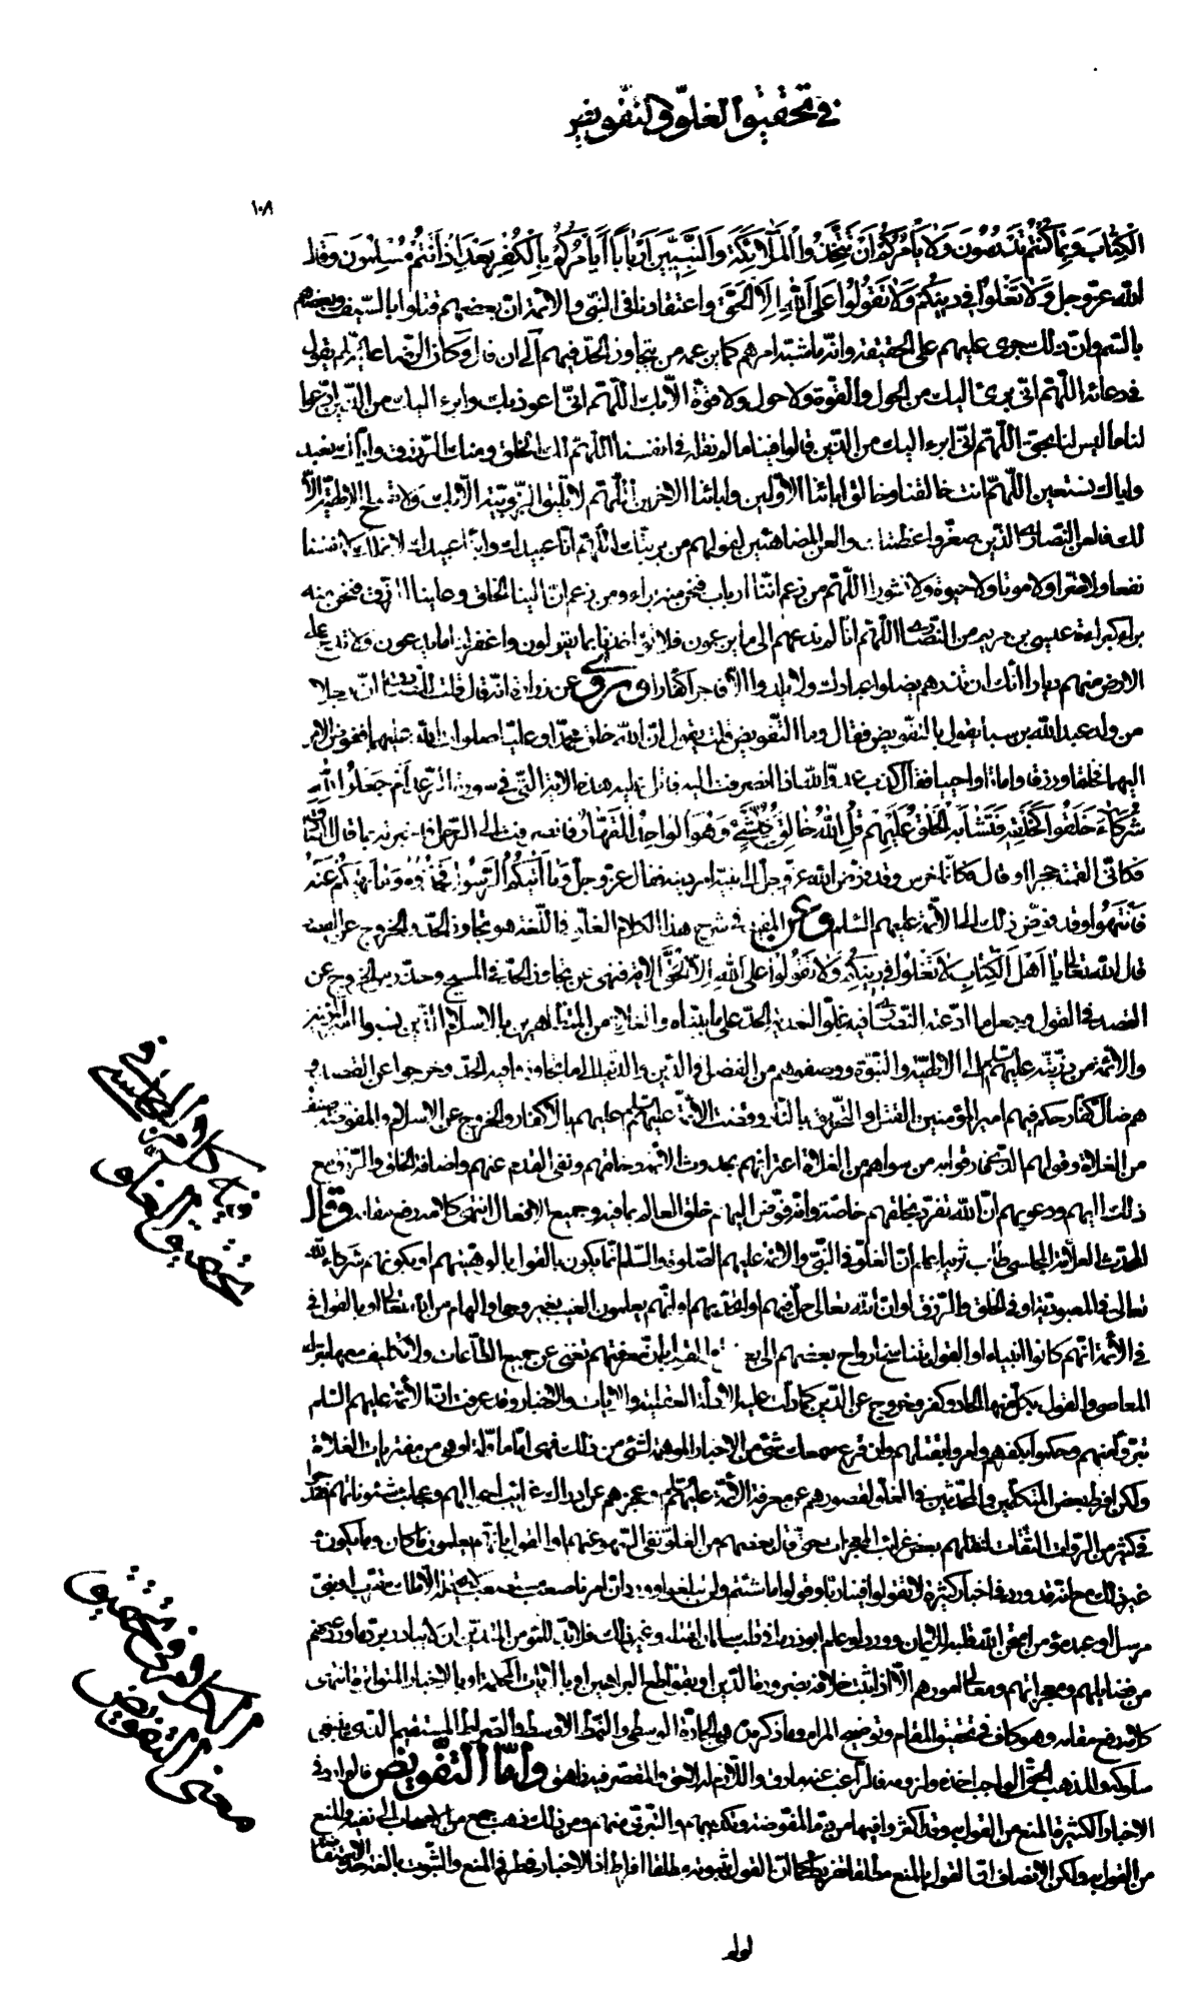 في تحقيق الغلوّ والتفويض
١٠٨
الْكِتَابَ وَبِمَا كُنْتُمْ تَدْرُسُونَ وَلَا يَأْمُرَكُمْ أَنْ تَتَّخِذُوا الْمَلَائِكَةَ وَالنَّبِيِّينَ أَرْبَابًا أَيَأْمُرُكُمْ بِالْكُفْرِ بَعْدَ إِذْ أَنْتُمْ مُسْلِمُونَ وقال
الله عزّ وجل وَلَا تَغْلُوا فِي دِينِكُمْ وَلَا تَقُولُوا عَلَى اللَّهِ إِلَّا الْحَقَّ واعتقادنا في النبيّ والائمة انّ بعضهم قتلوا بالسّيف وبعضهم
بالسّم وانّ ذلك جرى عليهم على الحقيقة وانّه ما شبّه امرهم كما يزعمه من يتجاوز الحدّ فيهم الى ان قال وكان الرّضا عليه السلام يقول
في دعائه اللّهمّ انّى برئ اليك من الحول والقوّة ولا حول ولا قوّة الّا بك اللّهمّ انّى اعوذ بك وابرء اليك من الّذين ادّعوا
لنا ما ليس لنا بحقّ اللّهمّ انّى ابرء اليك من الّذين قالوا فينا ما لم نقله في انفسنا اللّهمّ لك الخلق ومنك الرّزق وايّاك نعبد
واياك نستعين اللّهمّ انت خالقنا وخالق ابائنا الاوّلين وابائنا الاخرين اللّهمّ لا تليق الرّبوبيّة الّا بك ولا تصلح الالهيّة الّا
لك فالعن النّصارى الّذين صغّروا عظمتك والعن المضاهئين لقولهم من بريّتك اللّهمّ انّا عبيدك وابناء عبيدك لا نملك لانفسنا
نفعا ولا ضرّا ولا موتا ولا حيوة ولا نشورا اللّهمّ من زعم انّنا ارباب فنحن منه براء ومن زعم انّ الينا الخلق وعلينا الرّزق فنحن منه
براء كبراءة عيسى بن مريم من النّصارى اللّهمّ انّا لم ندعهم الى ما يزعمون فلا تؤاخذنا بما يقولون واغفر لنا ما يدعون ولا تدع على
الارض منهم ديارا انّك ان تذرهم يضلوا عبادك ولا يلدوا الّا فاجرا كفّارا وروى عن زرارة انّه قال قلت للصّادق انّ رجلا
من ولد عبد الله بن سبا يقول بالتفويض فقال وما التّفويض قلت يقول انّ الله خلق محمّدا وعليّا صلوات الله عليهما ففوّض الامر
اليهما فخلقا ورزقا واماتا واحييا فقال كذب عدوّ الله اذا انصرفت اليه فاتل عليه هذه الاية الّتى في سورة الرّعد أَمْ جَعَلُوا لِلَّهِ
شُرَكَاءَ خَلَقُوا كَخَلْقِهِ فَتَشَابَهَ الْخَلْقُ عَلَيْهِمْ قُلِ اللَّهُ خَالِقُ كُلِّ شَيْءٍ وَهُوَ الْوَاحِدُ الْقَهَّارُ فانصرفت الى الرّجل فاخبرته بما قال الصّادق
فكانّى القمته حجرا او قال فكانّما خرس وقد فوّض الله عزّ وجلّ الى نبيّه امر دينه فقال عزّ وجلّ وَمَا آتَاكُمُ الرَّسُولُ فَخُذُوهُ وَمَا نَهَاكُمْ عَنْهُ
فَانْتَهُوا وقد فوّض ذلك الى الائمة عليهم السّلم وعن المفيد في شرح هذا الكلام الغلوّ في اللّغة هو تجاوز الحدّ والخروج عن القصد
قال الله تعالى يَا أَهْلَ الْكِتَابِ لَا تَغْلُوا فِي دِينِكُمْ وَلَا تَقُولُوا عَلَى اللَّهِ إِلَّا الْحَقَّ الاية فنهى عن تجاوز الحدّ في المسيح وحذّر من الخروج عن
القصد في القول وجعل ما ادّعته النّصارى فيه غلوّا لتعديه الحدّ على ما بيّناه والغلاة من المتظاهرين بالاسلام الّذين نسبوا امير المؤمنين
والائمّة من ذرّيّته عليهم السلم الى الالهيّة والنّبوّة ووصفوهم من الفضل في الدّين والدّنيا الى ما تجاوزوا فيه الحدّ وخرجوا عن القصد و
هم ضلّال كفّار حكم فيهم امير المؤمنين بالقتل والتّحريق بالنّار وقضت الائمة عليهم السلم عليهم بالاكفار والخروج عن الاسلام والمفوّضة صنف
من الغلاة وقولهم الّذى فارقوا به من سواهم من الغلاة اعترافهم بحدوث الائمة وخلقهم ونفى القدم عنهم واضافة الخلق والرّزق مع
ذلك اليهم ودعويهم انّ الله تفرّد بخلقهم خاصّة وانّه فوّض اليهم خلق العالم بما فيه وجميع الافعال انتهى كلامه رفع مقامه وقال
المحدّث العلّامة المجلسى طاب ثراه اعلم انّ الغلوّ في النّبيّ والائمة عليهم الصّلوة والسّلم انّما يكون بالقول بالوهيّتهم او بكونهم شركاء لله
تعالى في المعبوديّة او في الخلق والرّزق او انّ الله تعالى حلّ فيهم او اتّحد بهم او انّهم يعلمون الغيب بغير وحى والهام من الله تعالى او بالقول في
الأئمة انّهم كانوا انبياء او القول بتناسخ ارواح بعضهم الى بعض او القول بانّ معرفتهم تغنى عن جميع الطّاعات ولا تكليف معها بترك
المعاصى والقول بكلّ منها الحاد وكفر وخروج عن الدّين كما دلّت عليه الادلّة العقلية والايات والاخبار وقد عرفت انّ الأئمة عليهم السّلم
تبرّؤا منهم وحكموا بكفرهم وامروا بقتلهم وان قرع سمعك شئ من الاخبار الموهمة لشئ من ذلك فهى امّا ماوّلة او هى من مفتريات الغلاة
ولكن افرط بعض المتكلّمين والمحدّثين في الغلوّ لقصورهم عن معرفة الأئمّة عليهم السلم وعجزهم عن ادراك غرائب احوالهم وعجائب شئوناتهم فقدحوا
في كثير من الرّوات الثّقات لنقلهم بعض غرائب المعجزات حتّى قال بعضهم من الغلوّ نفى السّهو عنهم او القول بانّهم يعلمون ما كان وما يكون و
غير ذلك مع انّه قد ورد في اخبار كثيرة لا تقولوا فينا ربّا وقولوا ما شئتم ولن تبلغوا وورد انّ امرنا صعب مستصعب لا يحتمله الّا ملك مقرّب او نبىّ
مرسل او عبد مؤمن امتحن الله قلبه للايمان وورد لو علم ابو ذر ما في قلب سلمان لقتله وغير ذلك فلا بدّ للمؤمن المتديّن ان لا يبادر بردّ ما ورد عنهم
من فضايلهم ومعجزاتهم ومعالى امورهم الّا اذا ثبت خلافه بضرورة الدّين او بقواطع البراهين او بالايات المحكمة او بالاخبار المتواترة انتهى
كلامه رفع مقامه وهو كاف في تحقيق المقام وتوضيح المرام وما ذكره هى الجادّة الوسطى والنّمط الاوسط والصّراط المستقيم الّذى ينبغى
سلوكه والمذهب الحقّ الواجب اخذه ولزومه فالرّاغب عنه مارق واللّازم له لاحق والمقصّر فيه زاهق وأمّا التّفويض فالوارد في
الاخبار الكثيرة المنع من القول به وقد اكثروا فيها من ذمّ المفوّضة وتكذيبهم والتّبرّى منهم ومن ذلك ذهب جمع من الاصحاب الى نفيه والمنع
من القول به ولكن الانصاف انّ القول بالمنع مطلقا تفريط كما انّ القول بثبوته مطلقا افراط اذ الاخبار في طرفى المنع والثّبوت بالغة حدّ الاستفاضة
لو لم
فيه كلام المجلسى في
تحقيق الغلو
الكلام في تحقيق
معنى التفويض